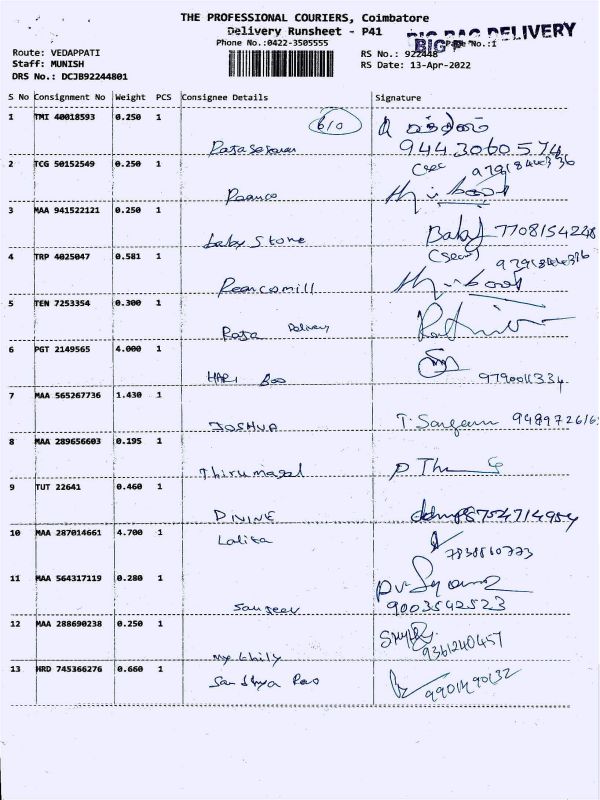 THE PROFESSIONAL COURIERS, Coimbatore
Delivery Runsheet - P41
Phone No.:0422-3505555
BIG BAG DELIVERY
Page No.:1
Route: VEDAPPATI
Staff: MUNISH
DRS No.: DCJB92244801
RS No.: 922448
RS Date: 13-Apr-2022
S No Consignment No Weight PCS Consignee Details Signature
1 TMI 40018593 0.250 1
9443060574
2 TCG 50152549 0.250 1
3 MAA 941522121 0.250 1 baby Stone Baby 7708154228
4 TRP 4025047 0.581 1
5 TEN 7253354 0.300 1 Raja Delivery
6 PGT 2149565 4.000 1 HARI
7 MAA 565267736 1.430 1 JOSHUA
8 MAA 289656603 0.195 1 Thirumagal
9 TUT 22641 0.460 1 DIVINE 8754714954
10 MAA 287014661 4.700 1 Lalita 7838860773
11 MAA 564317119 0.280 1 Sanjeev 9003542523
12 MAA 288690238 0.250 1 9361240457
13 HRD 745366276 0.660 1 Sandhya Rao